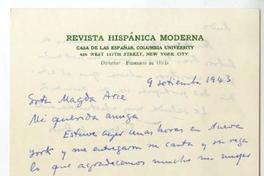 REVISTA HISPÁNICA MODERNA
CASA DE LAS ESPAÑAS, COLUMBIA UNIVERSITY
435 WEST 117TH STREET, NEW YORK CITY
Director: FEDERICO DE ONÍS
9 setiembre 1943
Srta Magda Arce
Mi querida amiga
Estuve ayer unas horas en Nueva
York y me entregaron su carta y su regalo
que agradecemos mucho mi mujer